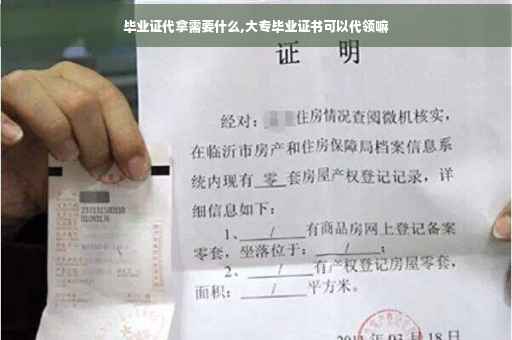 毕业证代拿需要什么,大专毕业证书可以代领嘛
证 明
经对: 住房情况查阅微机核实,
在临沂市房产和住房保障局档案信息系
统内现有 零 套房屋产权登记记录, 详
细信息如下:
1、 / 有商品房网上登记备案
零套, 坐落位于: / ;
2、 / 有产权登记房屋零套,
面积: / 平方米。
年 03 月 18 日